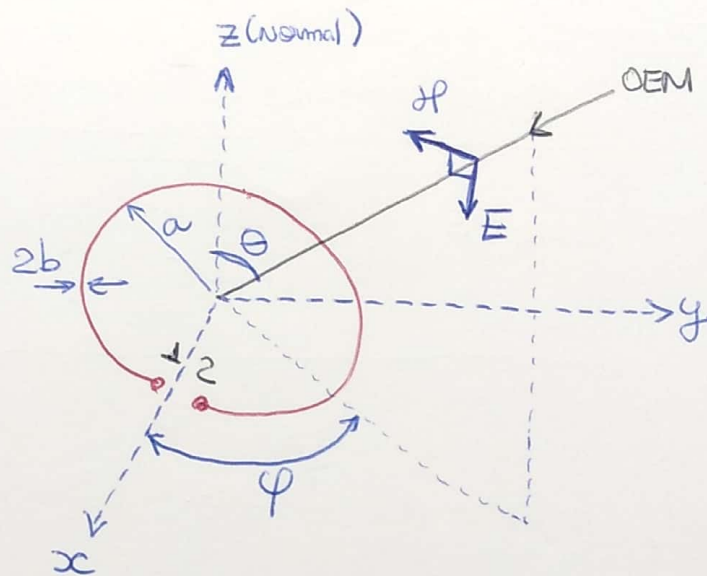 z (Normal)
OEM
H
a
θ
E
2b
y
1 2
φ
x